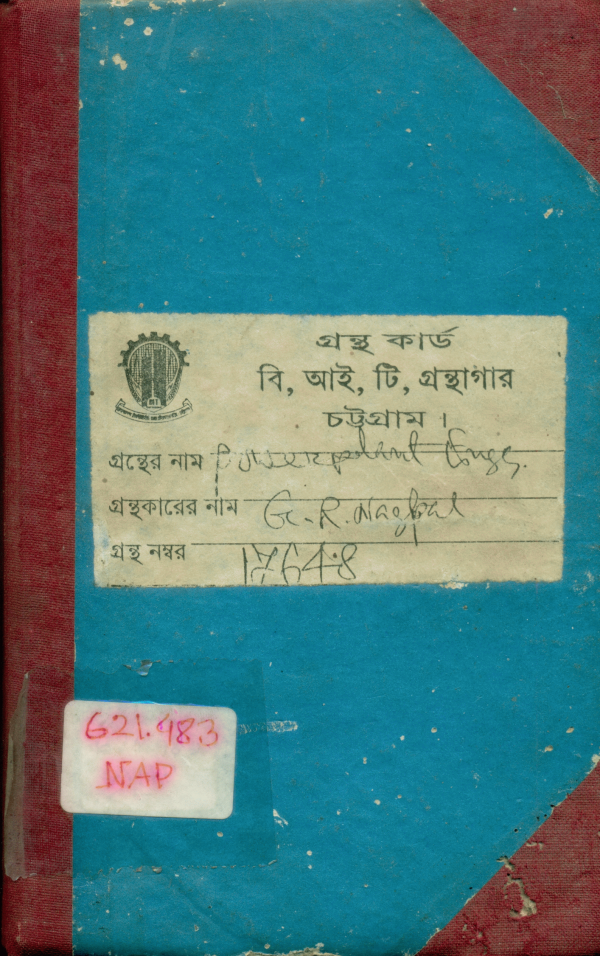 গ্রন্থ কার্ড
বি, আই, টি, গ্রন্থাগার
চট্টগ্রাম ।
গ্রন্থের নাম Powerplant Engg.
গ্রন্থকারের নাম G. R. Nagpal
গ্রন্থ নম্বর 17648
621.483
NAP